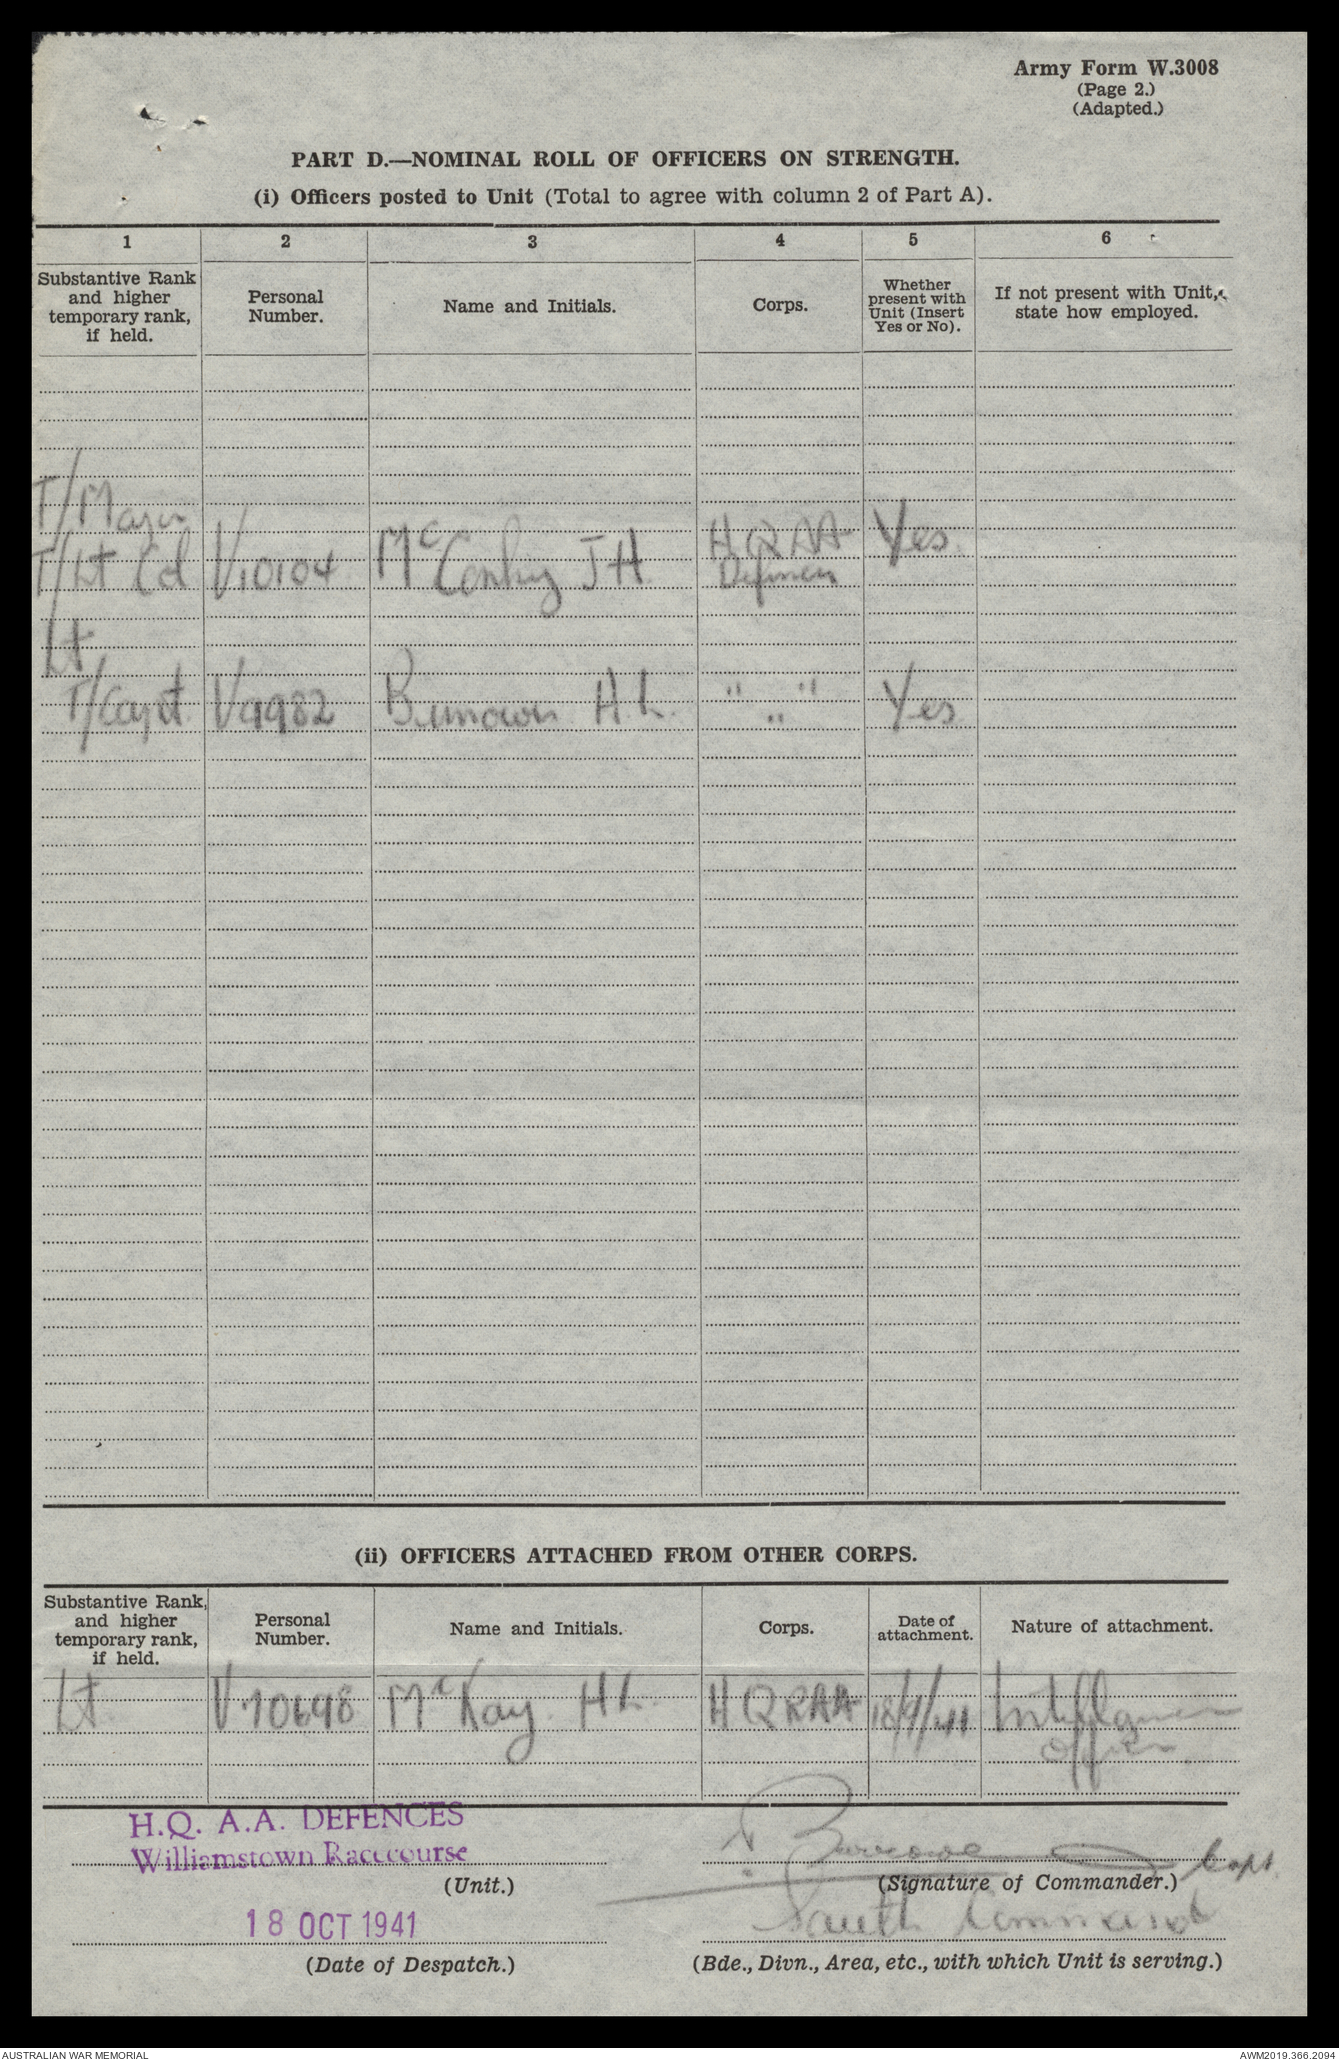 Army Form W.3008
(Page 2.)
(Adapted.)
PART D.—NOMINAL ROLL OF OFFICERS ON STRENGTH.
(i) Officers posted to Unit (Total to agree with column 2 of Part A).
1 2 3 4 5 6
Substantive Rank and higher temporary rank, if held.
Personal Number.
Name and Initials.
Corps.
Whether present with Unit (Insert Yes or No).
If not present with Unit, state how employed.
T/Major
T/Lt Col V10104 J H H Q AA Yes
Lt
T/Capt V9982 H. L. " " Yes
"
(ii) OFFICERS ATTACHED FROM OTHER CORPS.
Substantive Rank, and higher temporary rank, if held.
Personal Number.
Name and Initials.
Corps.
Date of attachment.
Nature of attachment.
Lt V70698 McKay H L. H Q RAA 18/9/41 Intelligence
Officer
H.Q. A.A. DEFENCES
Williamstown Racecourse
(Unit.)
Capt.
(Signature of Commander.)
18 OCT 1941
South Command
(Date of Despatch.)
(Bde., Divn., Area, etc., with which Unit is serving.)
AUSTRALIAN WAR MEMORIAL
AWM2019.366.2094